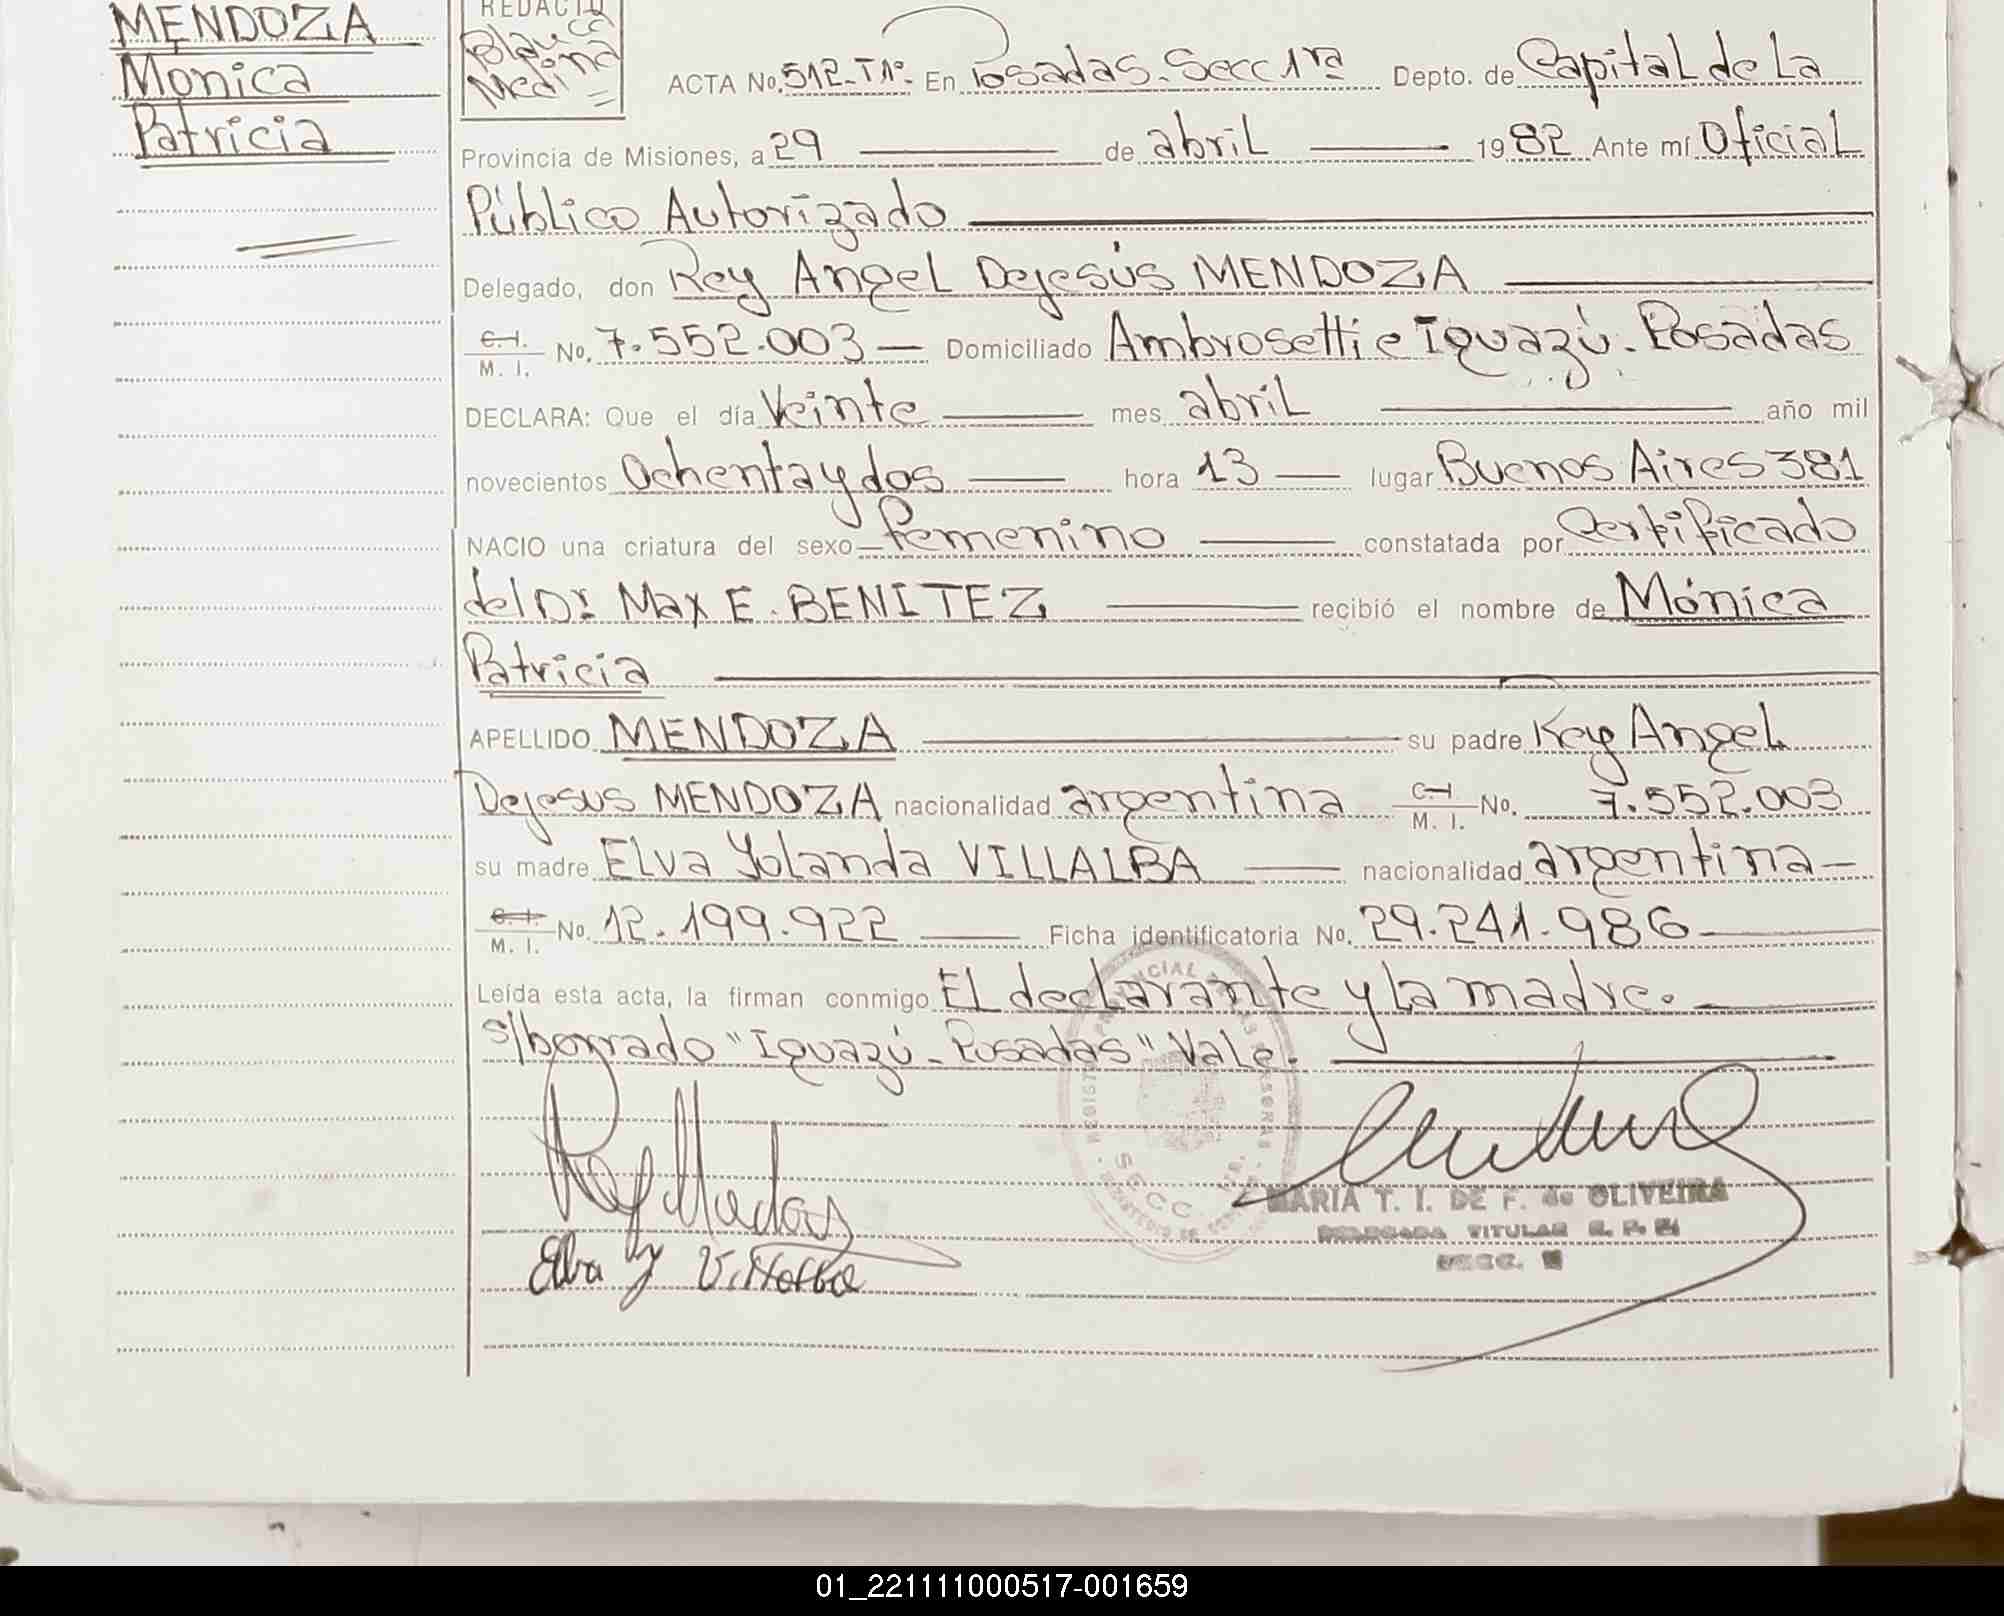 MENDOZA
Monica
Patricia
REDACTO
Blanca
Medina
ACTA No. 512-T1º- En Posadas. Secc 1ra Depto. de Capital de La
Provincia de Misiones, a 29 de abril 1982 Ante mí Oficial
Público Autorizado
Delegado, don Rey Angel Dejesús MENDOZA
C. I.
M. I. No. 7.552.003 — Domiciliado Ambrosetti e Iguazú. Posadas
DECLARA: Que el día Veinte mes abril año mil
novecientos Ochenta y dos hora 13 lugar Buenos Aires 381
NACIO una criatura del sexo femenino constatada por Certificado
del Dr Max E. BENITEZ recibió el nombre de Mónica
Patricia
APELLIDO MENDOZA su padre Rey Angel
Dejesus MENDOZA nacionalidad argentina C. I.
M. I. No. 7.552.003
su madre Elva Yolanda VILLALBA nacionalidad argentina —
C. I.
M. I. No. 12.199.922 Ficha identificatoria No. 29.241.986
Leída esta acta, la firman conmigo El declarante y la madre.
s/borrado "Iguazú - Posadas" Vale.
Elva Y Villalba
MARIA T. I. DE F. de OLIVEIRA
DELEGADA TITULAR R. P. P.
SECC.
01_221111000517-001659